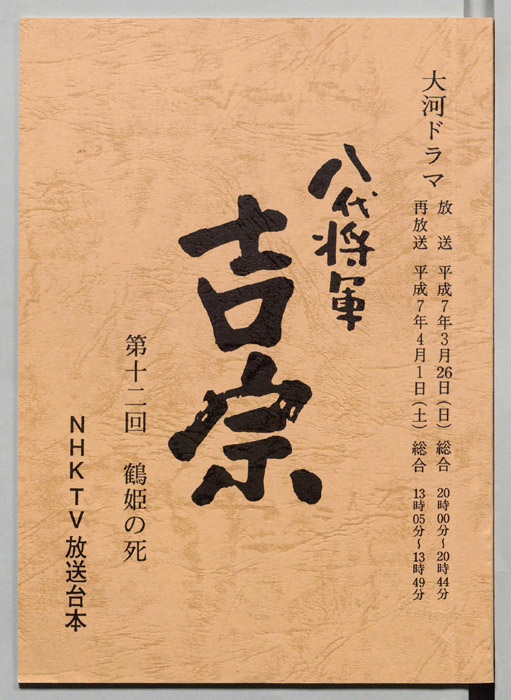 大河ドラマ
放送 平成7年3月26日(日) 総合 20時00分〜20時44分
再放送 平成7年4月1日(土) 総合 13時05分〜13時49分
八代将軍
吉宗
第十二回 鶴姫の死
NHKTV放送台本